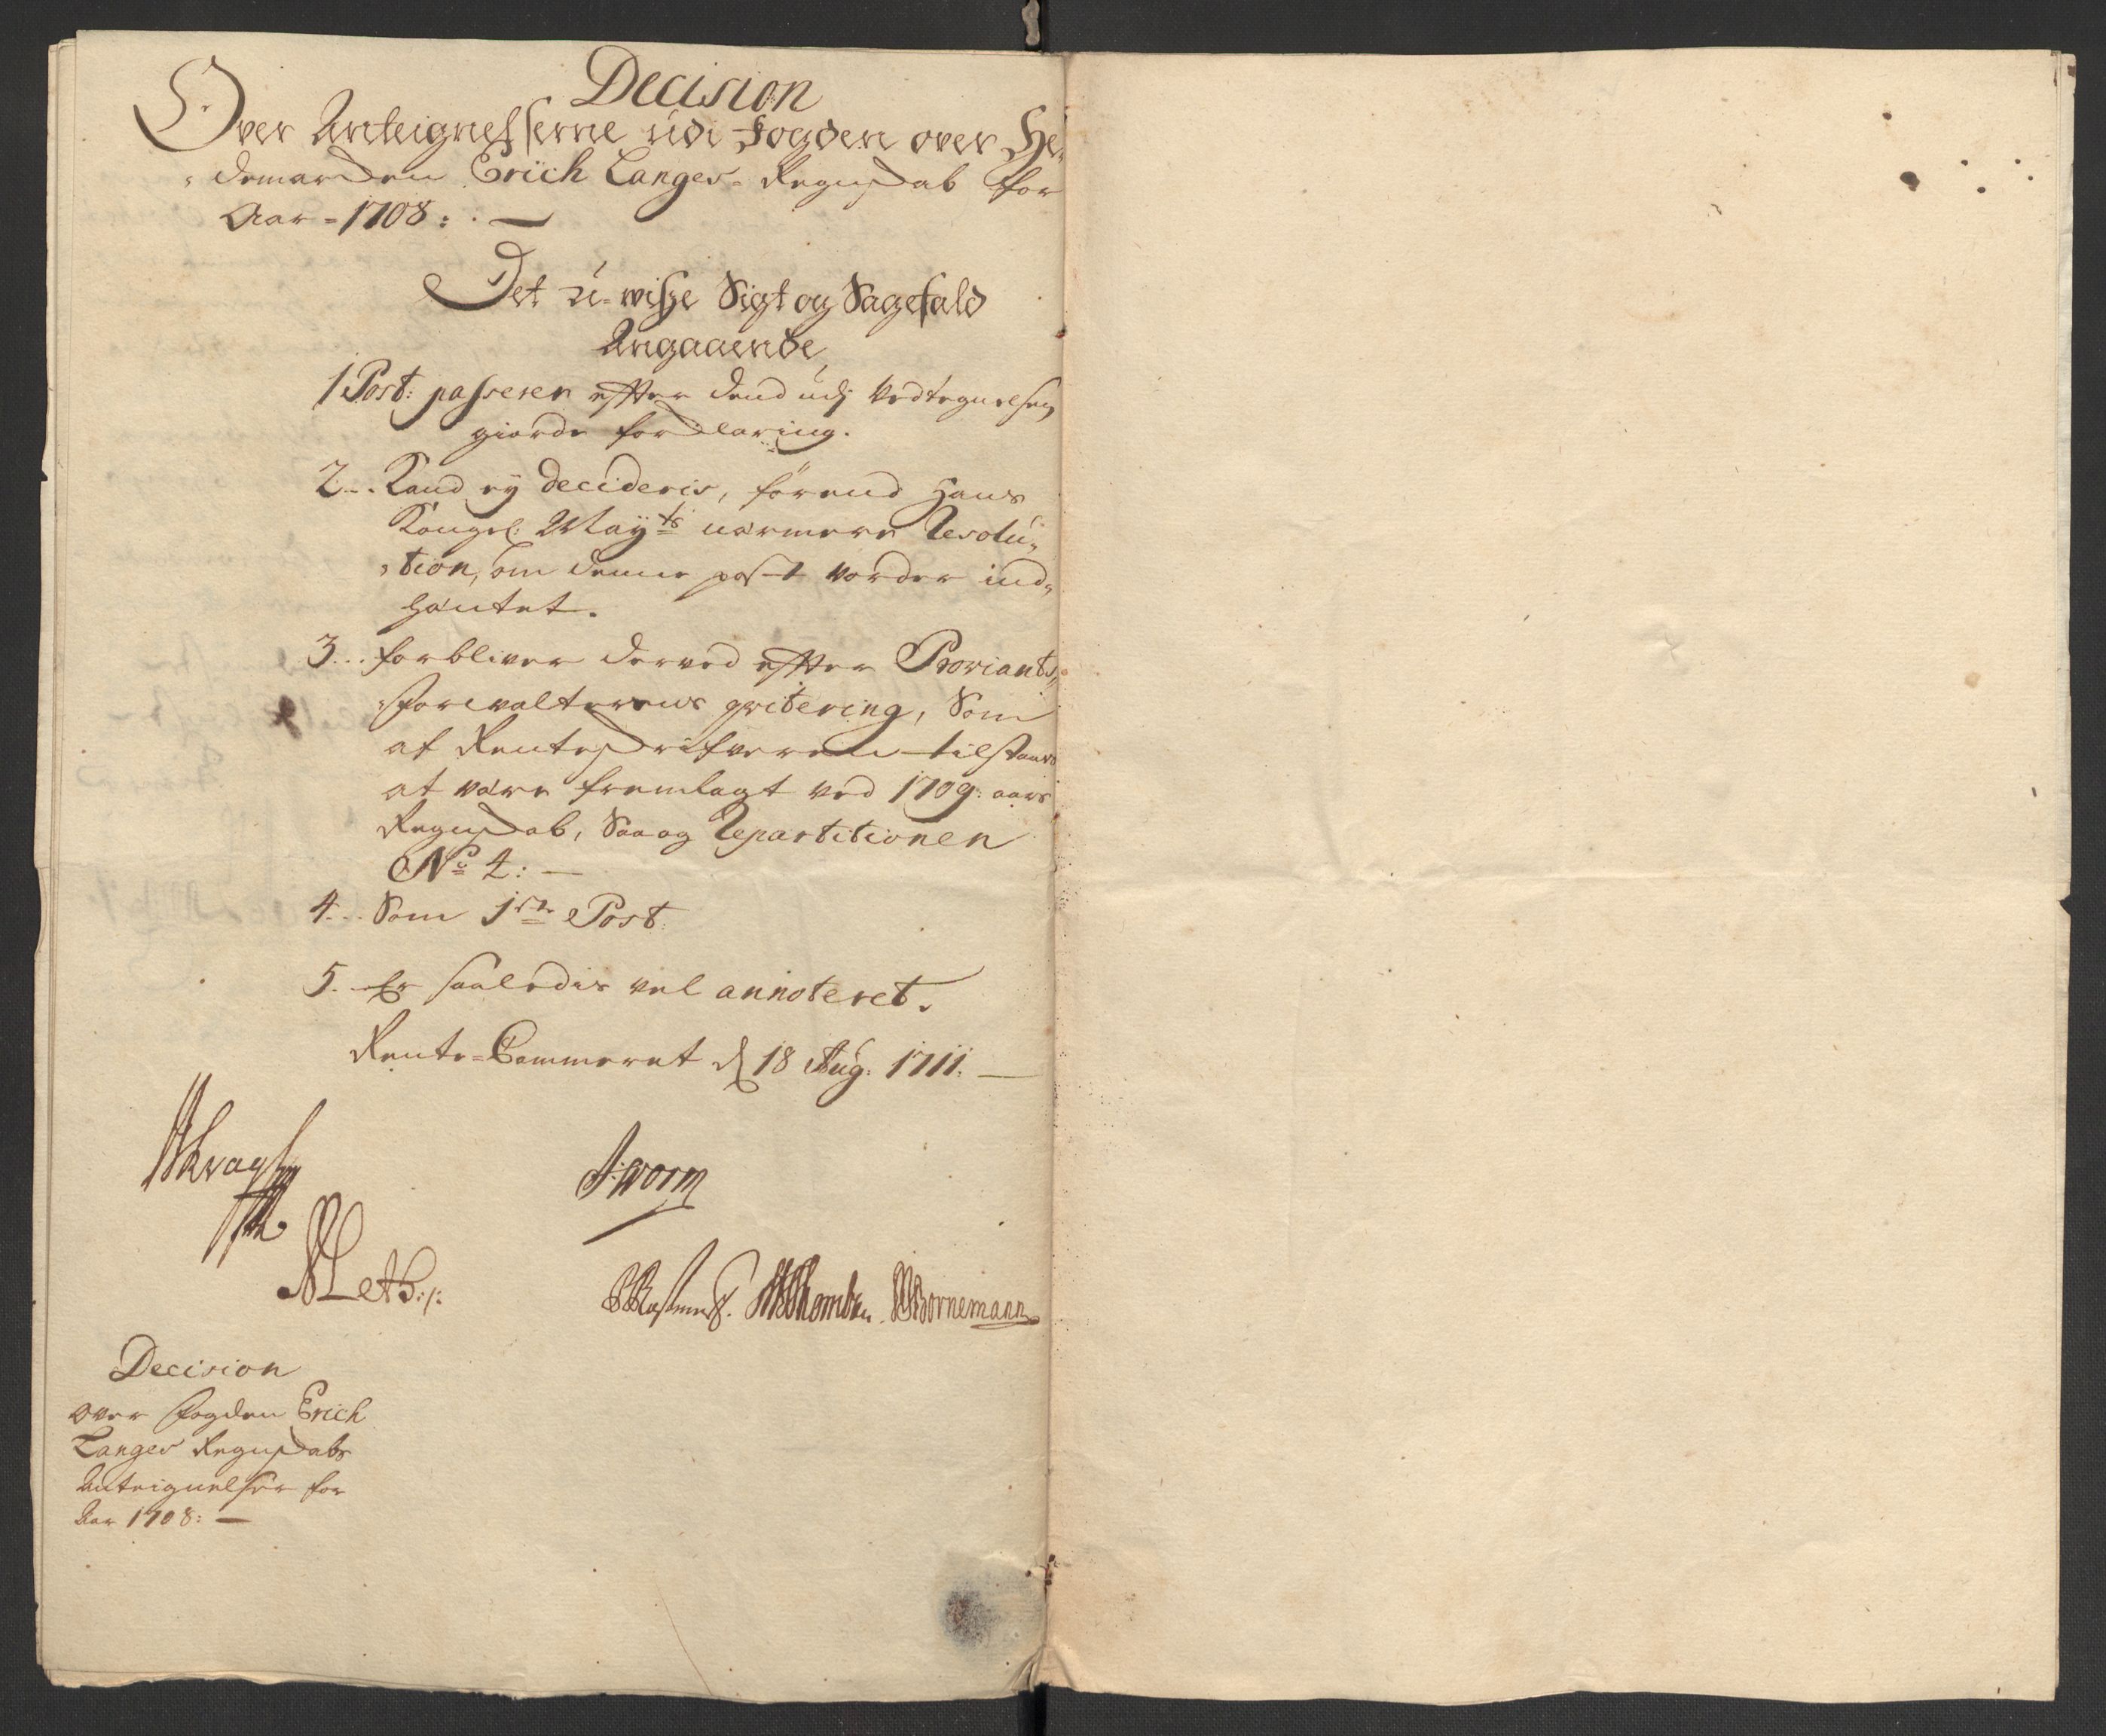 Decision
Over Anteignelserne udi Fogden over He-
demarken Erich Langes Regnskab for
Aar - 1708: . —
Det u-wisse Sigt og Sagefald
Angaaende
1 Post: passerer effter dend udj Vedtegnelsen
giorde forklaring.
2... Kand ey decideris, förend Hans
Kongel: Mayts nærmere Resolu-
tion, om denne post vorder ind-
hæntet.
3... forbliver derved effter Proviants
forvalterens qvitering, Som
af Renteskrifveren tilstaaes
at være fremlagt ved 1709: aars
Regnskab, Saa og Repartitionen
No 2: —
4... Som 1ste Post
5... Er saaledis vel annoteret.
Rente-Cammeret d 18 Aug: 1711. —
Worm
Bornemann
Decision
over fogden Erich
Langes Regnskabs
Anteignelser for
Aar 1708: —